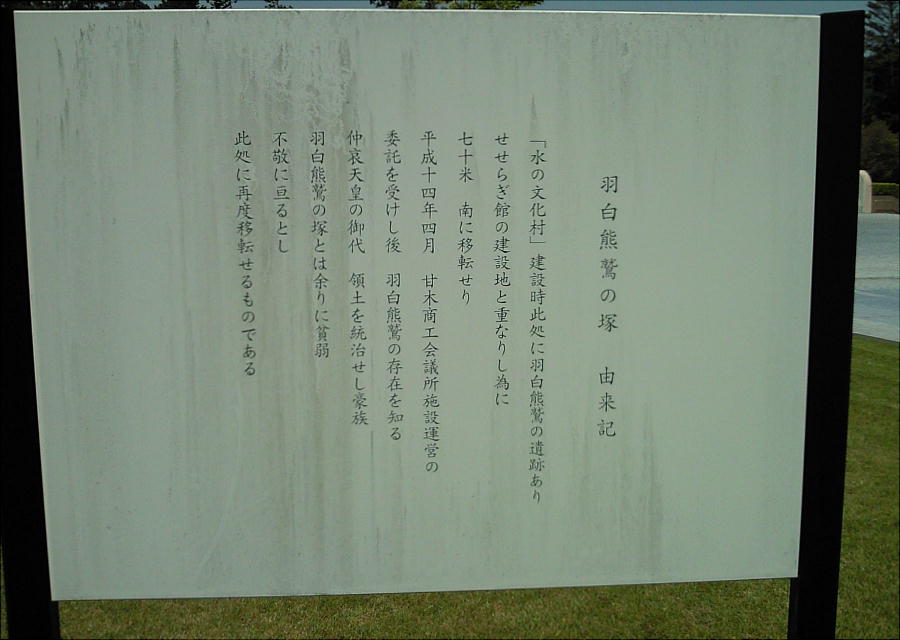 羽白熊鷲の塚　由来記
「水の文化村」建設時此処に羽白熊鷲の遺跡あり
せせらぎ館の建設地と重なりし為に
七十米　南に移転せり
平成十四年四月　甘木商工会議所施設運営の
委託を受けし後　羽白熊鷲の存在を知る
仲哀天皇の御代　領土を統治せし豪族
羽白熊鷲の塚とは余りに貧弱
不敬に亘るとし
此処に再度移転せるものである